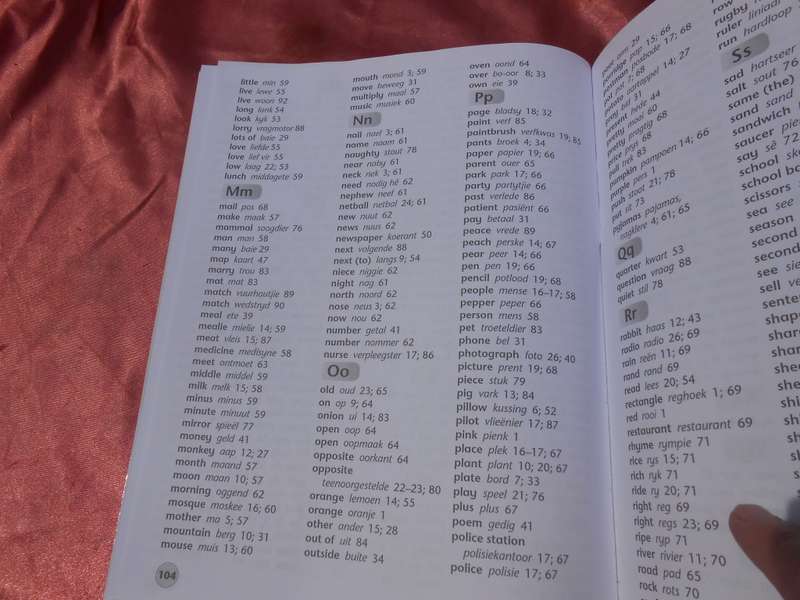 little min 59
live lewe 55
live woon 92
long lank 54
look kyk 53
lorry vragmotor 88
lots of baie 29
love liefde 55
love lief vir 55
low laag 22; 53
lunch middagete 59
Mm
mail pos 68
make maak 57
mammal soogdier 76
man man 58
many baie 29
map kaart 47
marry trou 83
mat mat 83
match vuurhoutjie 89
match wedstryd 90
meal ete 39
mealie mielie 14; 59
meat vleis 15; 87
medicine medisyne 58
meet ontmoet 63
middle middel 59
milk melk 15; 58
minus minus 59
minute minuut 59
mirror spieël 77
money geld 41
monkey aap 12; 27
month maand 57
moon maan 10; 57
morning oggend 62
mosque moskee 16; 60
mother ma 5; 57
mountain berg 10; 31
mouse muis 13; 60
104
mouth mond 3; 59
move beweeg 31
multiply maal 57
music musiek 60
Nn
nail nael 3; 61
name naam 61
naughty stout 78
near naby 61
neck nek 3; 61
need nodig hê 62
nephew neef 61
netball netbal 24; 61
new nuut 62
news nuus 62
newspaper koerant 50
next volgende 88
next (to) langs 9; 54
niece niggie 62
night nag 61
north noord 62
nose neus 3; 62
now nou 62
number getal 41
number nommer 62
nurse verpleegster 17; 86
Oo
old oud 23; 65
on op 9; 64
onion ui 14; 83
open oop 64
open oopmaak 64
opposite oorkant 64
opposite
teenoorgestelde 22–23; 80
orange lemoen 14; 55
orange oranje 1
other ander 15; 28
out of uit 84
outside buite 34
oven oond 64
over bo-oor 8; 33
own eie 39
Pp
page bladsy 18; 32
paint verf 85
paintbrush verfkwas 19; 85
pants broek 4; 34
paper papier 19; 66
parent ouer 65
park park 17; 66
party partytjie 66
past verlede 86
patient pasiënt 66
pay betaal 31
peace vrede 89
peach perske 14; 67
pear peer 14; 66
pen pen 19; 66
pencil potlood 19; 68
people mense 16–17; 58
pepper peper 66
person mens 58
pet troeteldier 83
phone bel 31
photograph foto 26; 40
picture prent 19; 68
piece stuk 79
pig vark 13; 84
pillow kussing 6; 52
pilot vlieënier 17; 87
pink pienk 1
place plek 16–17; 67
plant plant 10; 20; 67
plate bord 7; 33
play speel 21; 76
plus plus 67
poem gedig 41
police station
polisiekantoor 17; 67
police polisie 17; 67
porridge pap 15; 66
postman posbode 17; 68
pot pot 7; 68
potato aartappel 14; 27
present hede 44
pretty mooi 60
pretty pragtig 68
price prys 68
pumpkin pampoen 14; 66
purple pers 1
push stoot 21; 78
put sit 73
pyjamas pajamas,
nagklere 4; 61; 65
Qq
quarter kwart 53
question vraag 88
quiet stil 78
Rr
rabbit haas 12; 43
radio radio 26; 69
rain reën 11; 69
rand rand 69
read lees 20; 54
rectangle reghoek 1; 69
red rooi 1
restaurant restaurant 69
rhyme rympie 71
rice rys 15; 71
rich ryk 71
ride ry 20; 71
right reg 69
right regs 23; 69
ripe ryp 71
river rivier 11; 70
road pad 65
rock rots 70
rugby
ruler liniaal
run hardloop
Ss
sad hartseer
salt sout 76
same (the)
sand sand
sandwich
saucer
say sê 72
school
school
scissors
sea see
season
second
second
see sie
sell